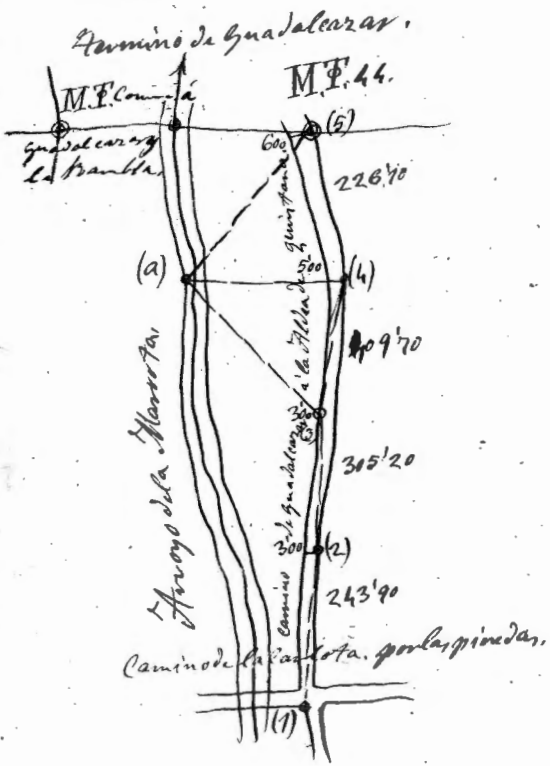 Termino de Guadalcazar.
M.T. Comun á
Guadalcazar y
la Rambla.
M.T. 44.
(5)
600
226'70
(a)
500
(4)
409'70
300
(3)
305'20
300
(2)
243'90
Arroyo de la Marota.
Camino de Guadalcazar á la Aldea de Quintana.
Camino de la Carlota por las pinedas.
(1)